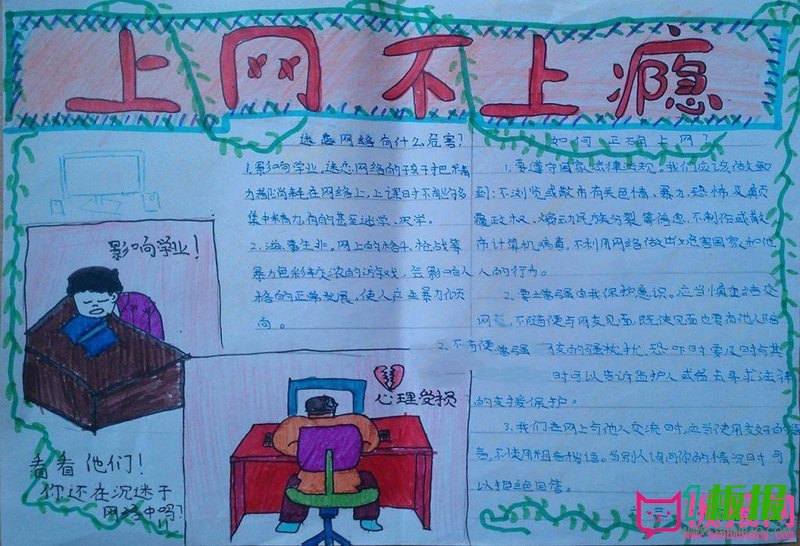 上网不上瘾
迷恋网络有什么危害?
1.影响学业,迷恋网络的孩子把精
力都消耗在网络上,上课时不能够
集中精力,有的甚至逃学、厌学。
2.滋事生非。网上的格斗、枪战等
暴力色彩较浓的游戏,会影响人
格的正常发展,使人产生暴力倾
向。
如何正确上网?
1.要遵守国家法律法规。我们应该做
到:不浏览或散布有关色情、暴力、恐怖及颠
覆政权、煽动民族分裂等信息,不制作或散
布计算机病毒,不利用网络做出危害国家和他
人的行为。
2.要增强自我保护意识。应当慎重结交
网友,不随便与网友见面,既使见面也要有他人陪
2.不随便
骚扰、恐吓时要及时
时可以告诉监护人或者去寻求法律
的支援保护。
3.我们在网上与他人交流时,应当使用友好的语
言,不使用粗言秽语。当别人询问你的情况时可
以拒绝回答。
影响学业!
心理受损
看看他们!
你还在沉迷于
网络中吗?
板报